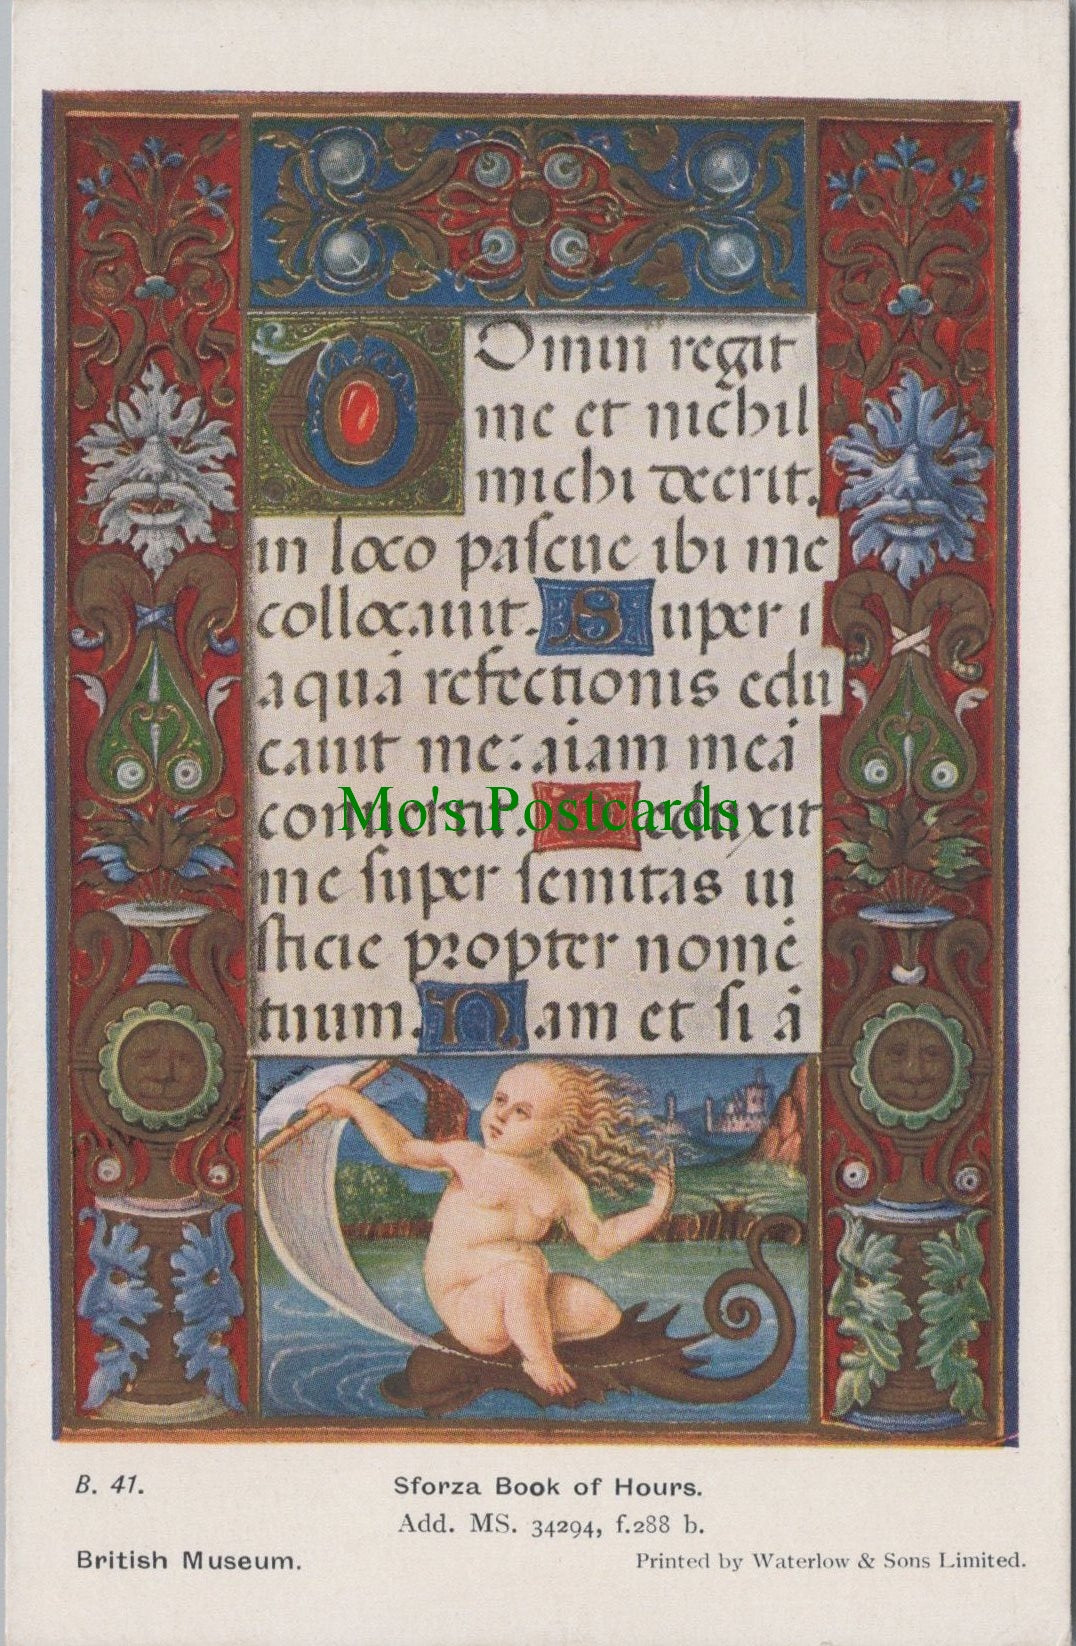 Omin regit
me et nichil
michi deerit.
in loco pascue ibi me
collocauit. Super
aquā refectionis edu
cauit me: aīam meā
Mo's Postcards
eduxit
me super semitas iu
sticie propter nomē
tuum. Nam et si ā
B. 41. Sforza Book of Hours.
Add. MS. 34294, f.288 b.
British Museum. Printed by Waterlow & Sons Limited.